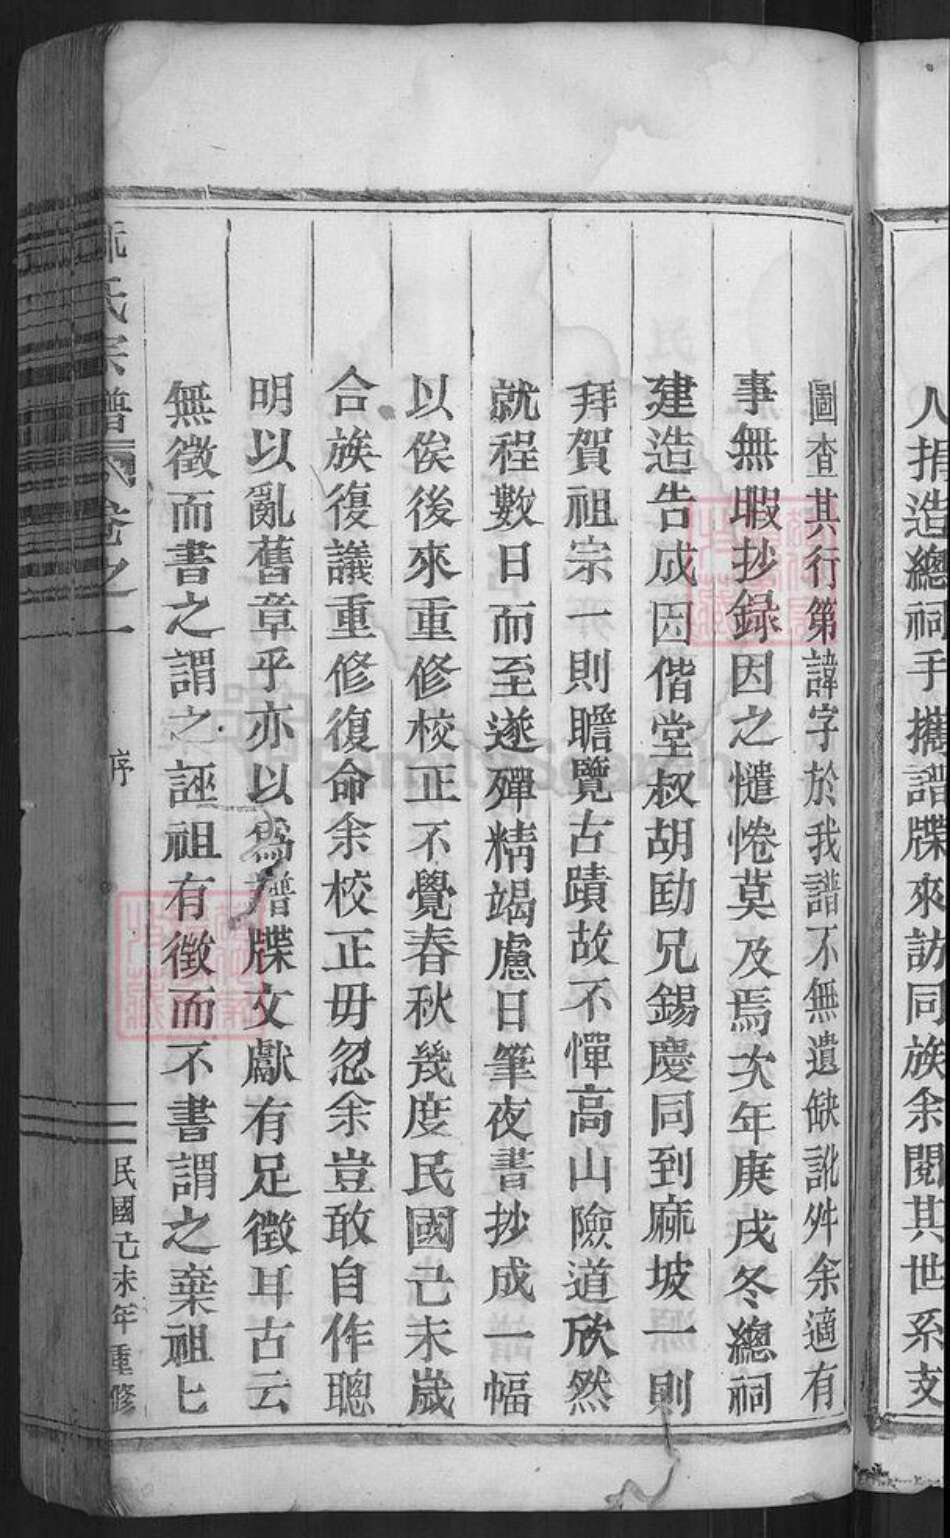 人捐造總祠手攜譜牒來訪同族余閱其世系支
圖查其行第諱字於我譜不無遺缺訛舛余適有
事無暇抄錄因之懥惓莫及焉次年庚戌冬總祠
建造告成因偕堂叔胡勛兄錫慶同到麻坡一則
拜賀祖宗一則瞻覽古蹟故不憚高山險道欣然
就程數日而至遂殫精竭慮日筆夜書抄成一幅
以俟後來重修校正不覺春秋幾度民國己未歲
合族復議重修復命余校正毋忽余豈敢自作聰
明以亂舊章乎亦以為譜牒文獻有足徵耳古云
無徵而書之謂之誣祖有徵而不書謂之棄祖匕
氏宗譜 卷之一
序
民國己未年重修